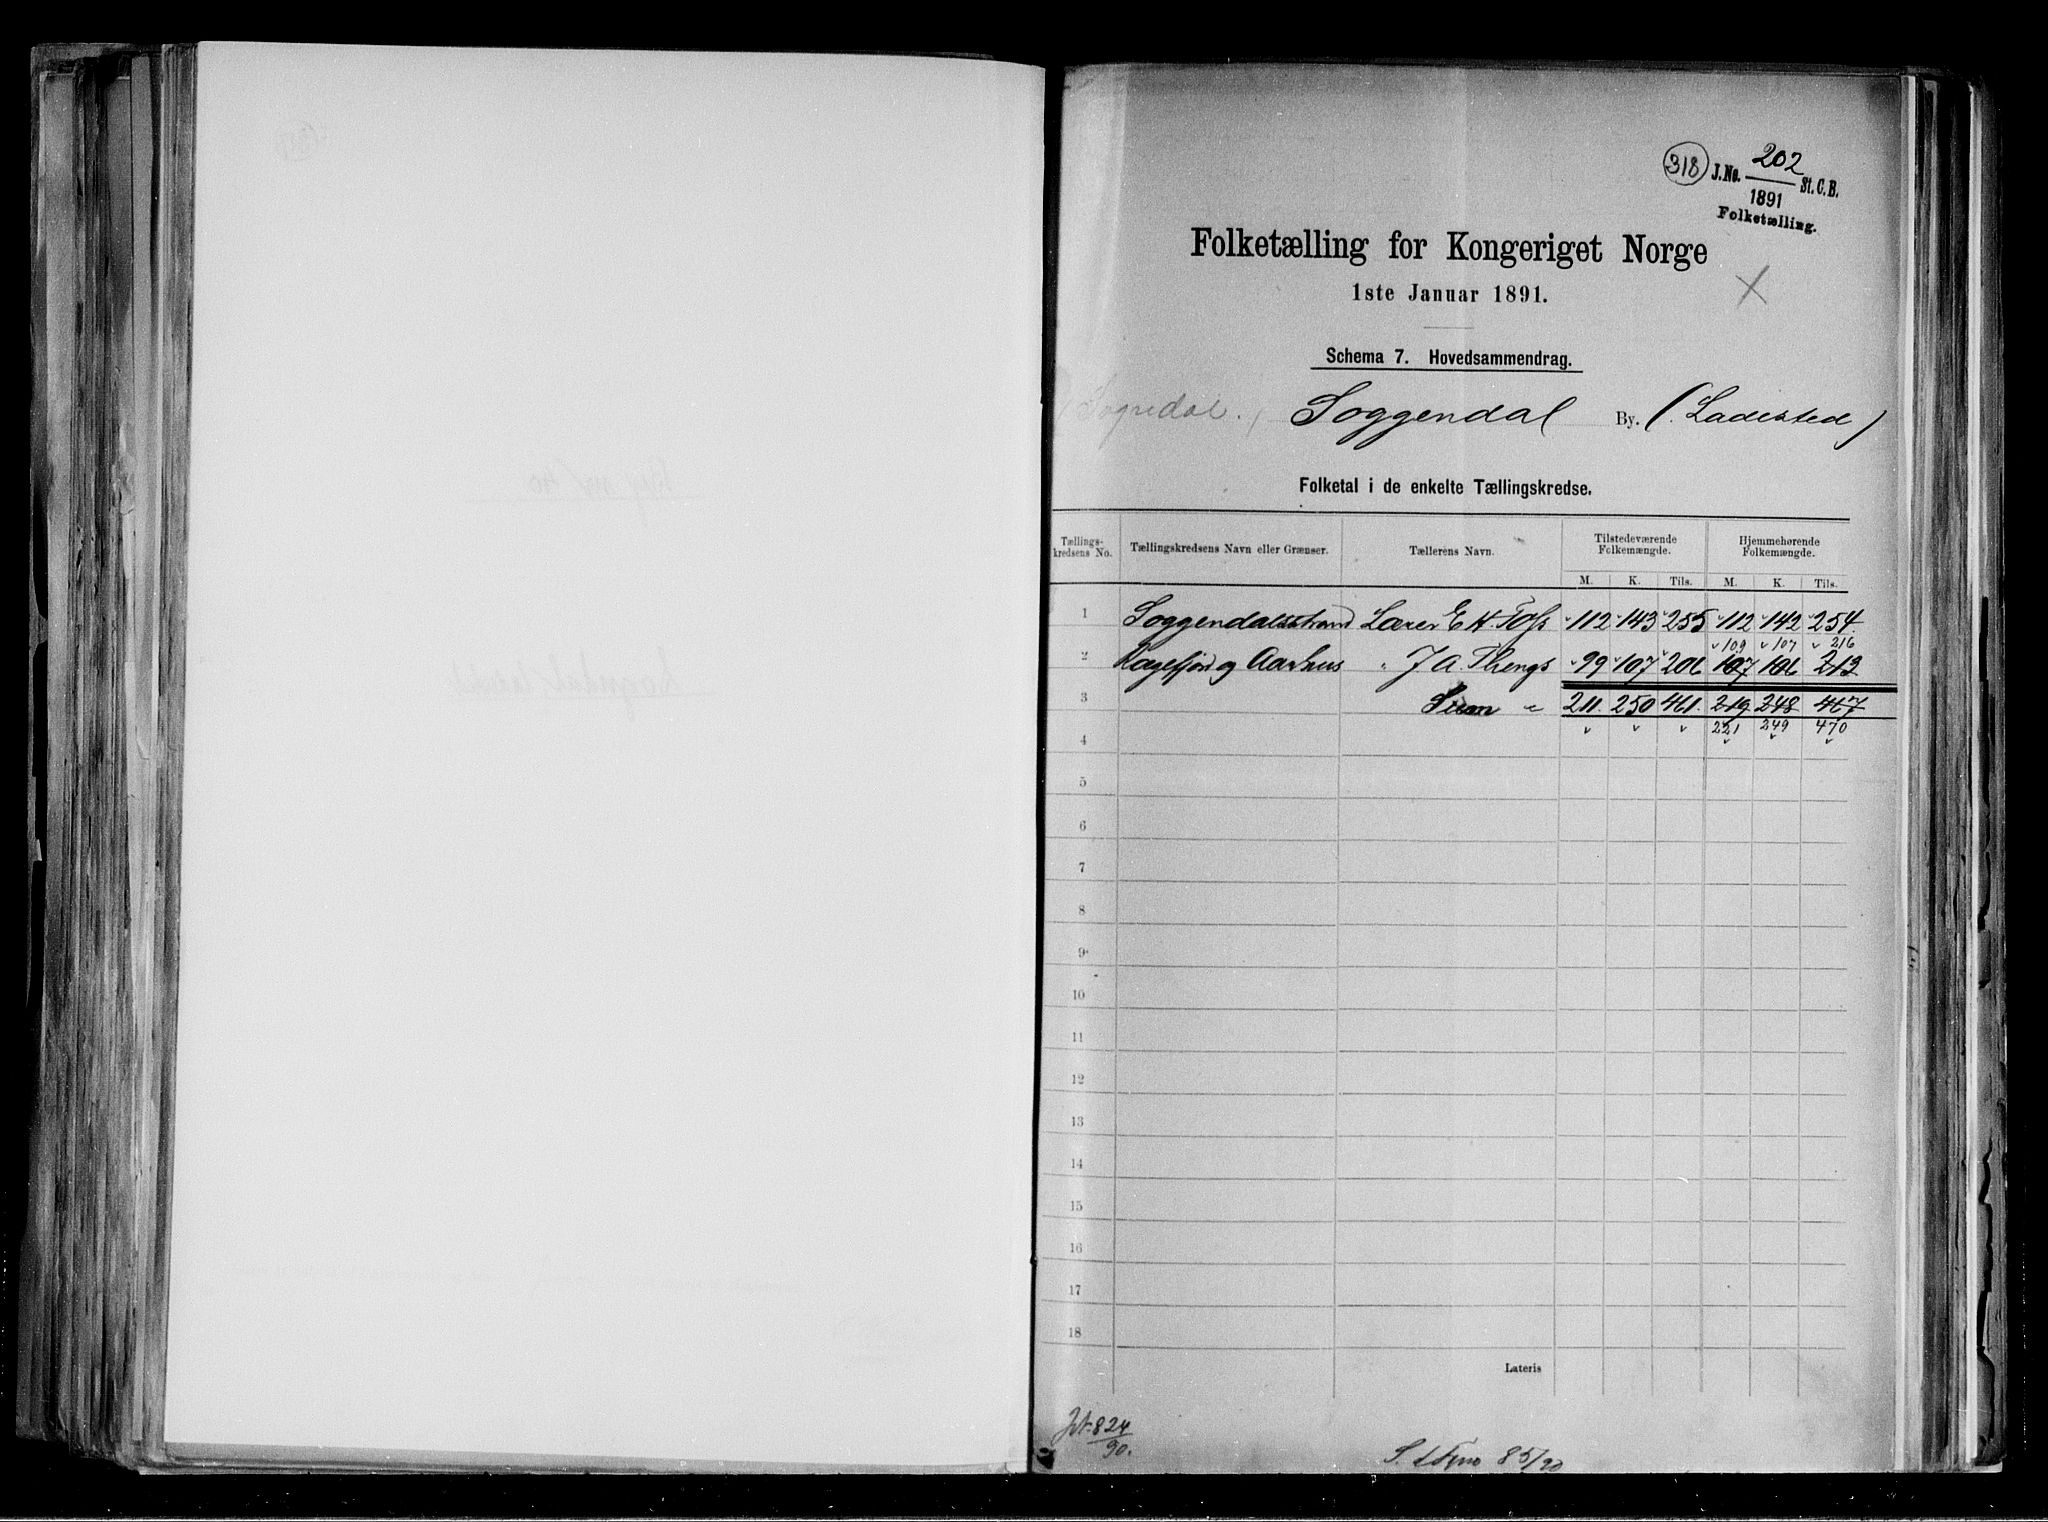 318 J.No. 202 St.C.B.
1891
Folketælling.
Folketælling for Kongeriget Norge
1ste Januar 1891.
Schema 7. Hovedsammendrag.
Sogndal. Soggendal By. (Ladested)
Folketal i de enkelte Tællingskredse.
Tællings-kredsens No. Tællingskredsens Navn eller Grænser. Tællerens Navn. Tilstedeværende Folkemængde. Hjemmehørende Folkemængde.
M. K. Tils. M. K. Tils.
1 Soggendalsstrand Lærer E H 112 143 255 112 142 254.
109 107 216
2 Ragefjord og Aarhus " J A 99 107 206 107 106 213
3 Sum 211. 250 461. 219 248 467
221 249 470
4
5
6
7
8
9
10
11
12
13
14
15
16
17
18
Lateris
824
90.
85/90